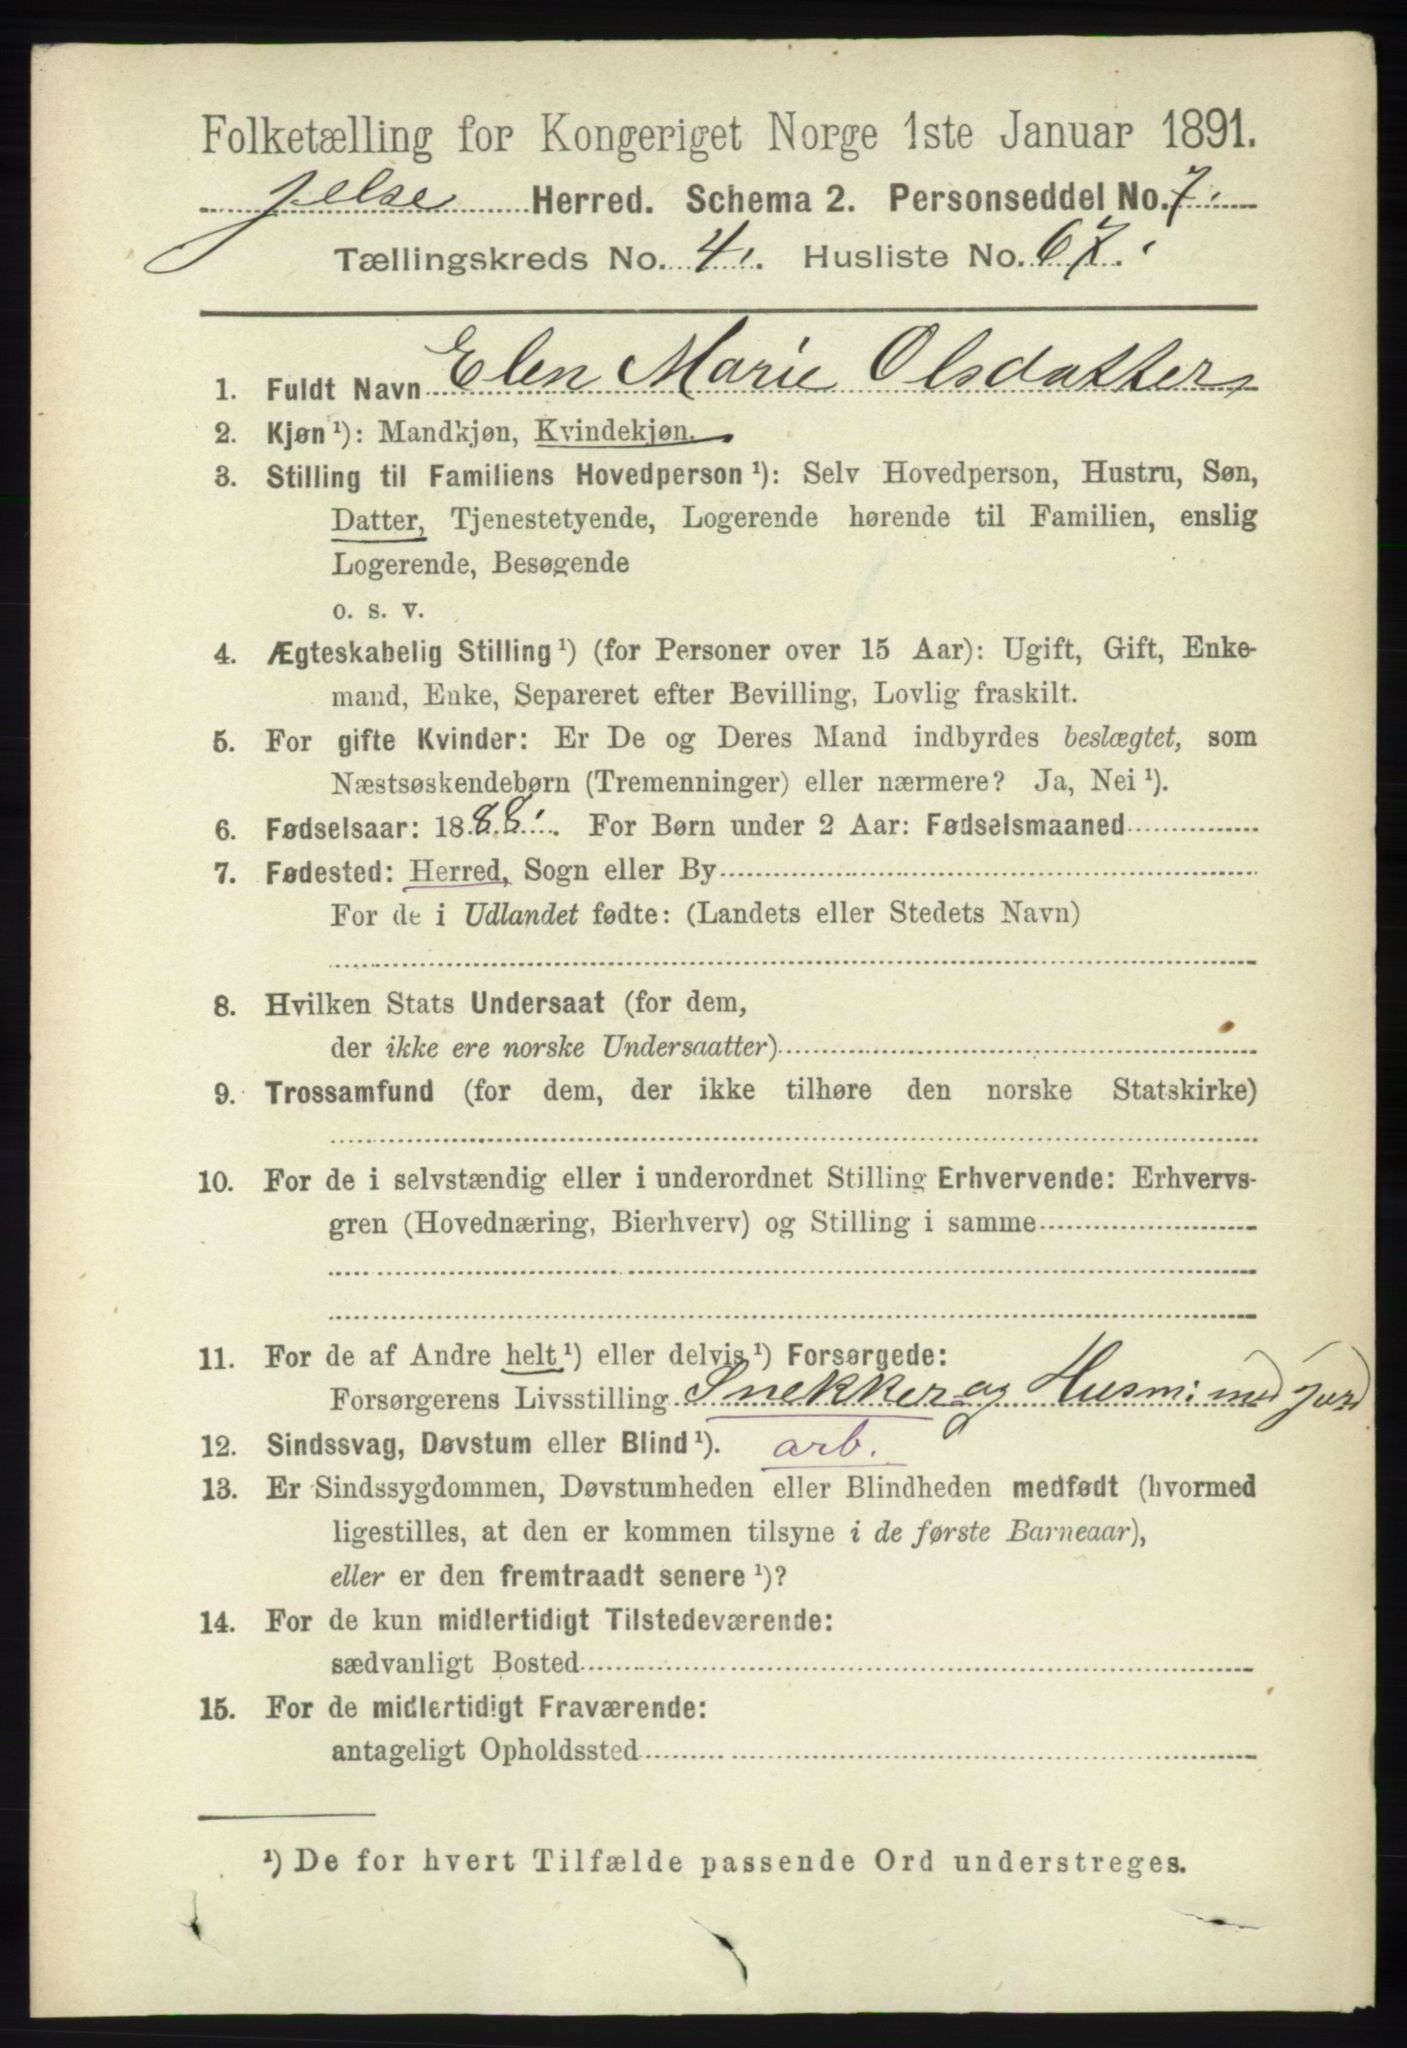 Folketælling for Kongeriget Norge 1ste Januar 1891.
Jelse Herred. Schema 2. Personseddel No. 7.
Tællingskreds No. 4. Husliste No. 67.
1. Fuldt Navn Elen Marie Olsdatter
2. Kjøn ¹): Mandkjøn, Kvindekjøn.
3. Stilling til Familiens Hovedperson ¹): Selv Hovedperson, Hustru, Søn,
Datter, Tjenestetyende, Logerende hørende til Familien, enslig
Logerende, Besøgende
o. s. v.
4. Ægteskabelig Stilling ¹) (for Personer over 15 Aar): Ugift, Gift, Enke-
mand, Enke, Separeret efter Bevilling, Lovlig fraskilt.
5. For gifte Kvinder: Er De og Deres Mand indbyrdes beslægtet, som
Næstsøskendebørn (Tremenninger) eller nærmere? Ja, Nei ¹).
6. Fødselsaar: 1888. For Børn under 2 Aar: Fødselsmaaned
7. Fødested: Herred, Sogn eller By
For de i Udlandet fødte: (Landets eller Stedets Navn)
8. Hvilken Stats Undersaat (for dem,
der ikke ere norske Undersaatter)
9. Trossamfund (for dem, der ikke tilhøre den norske Statskirke)
10. For de i selvstændig eller i underordnet Stilling Erhvervende: Erhvervs-
gren (Hovednæring, Bierhverv) og Stilling i samme
11. For de af Andre helt ¹) eller delvis ¹) Forsørgede:
Forsørgerens Livsstilling Snekker og Husm: med jord
12. Sindssvag, Døvstum eller Blind ¹). arb.
13. Er Sindssygdommen, Døvstumheden eller Blindheden medfødt (hvormed
ligestilles, at den er kommen tilsyne i de første Barneaar),
eller er den fremtraadt senere ¹)?
14. For de kun midlertidigt Tilstedeværende:
sædvanligt Bosted
15. For de midlertidigt Fraværende:
antageligt Opholdssted
¹) De for hvert Tilfælde passende Ord understreges.